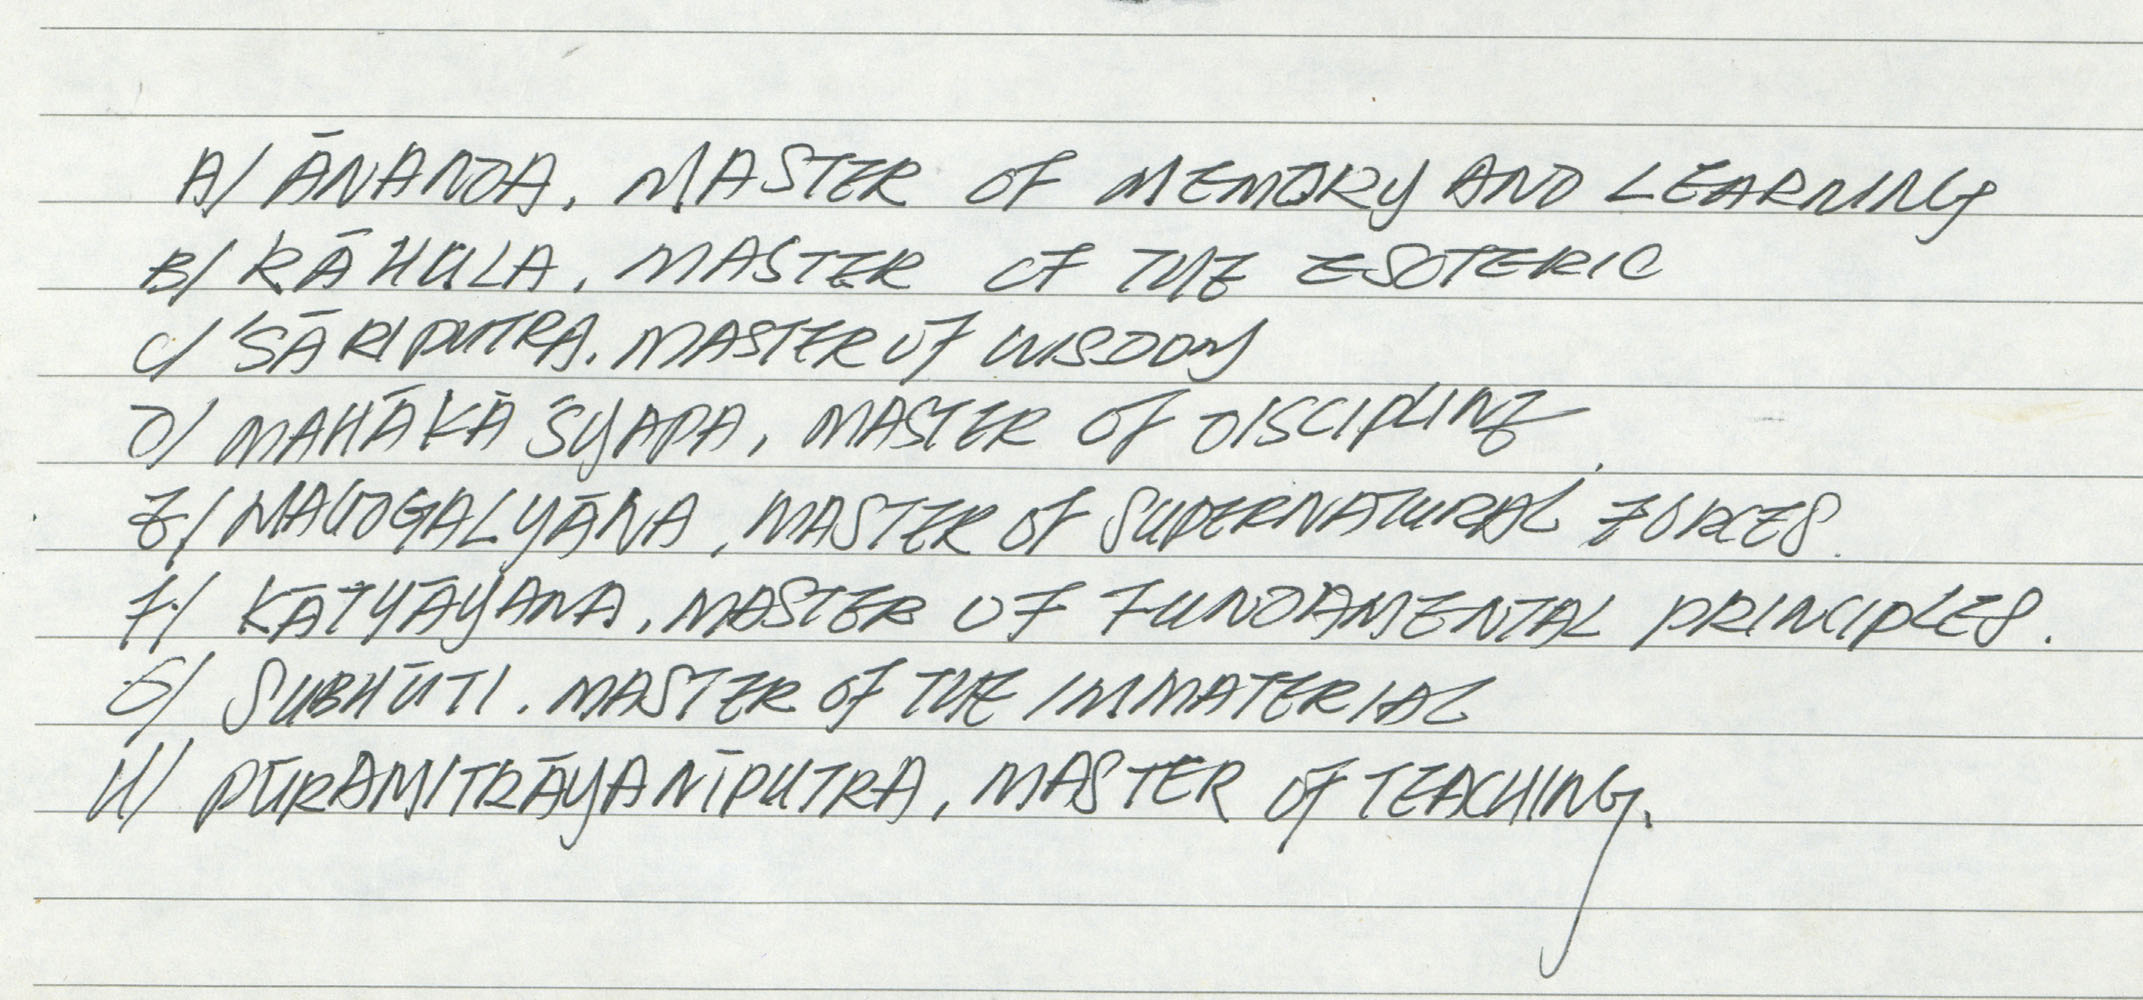 A/ ĀNANDA, MASTER OF MEMORY AND LEARNING
B/ RĀHULA, MASTER OF THE ESOTERIC
C/ ŚĀRIPUTRA. MASTER OF WISDOM
D/ MAHĀKĀŚYAPA, MASTER OF DISCIPLINE
E/ MAUDGALYĀNA, MASTER OF SUPERNATURAL FORCES.
F/ KĀTYĀYANA, MASTER OF FUNDAMENTAL PRINCIPLES.
G/ SUBHŪTI. MASTER OF THE IMMATERIAL
H/ PŪRAMITRĀYANĪPUTRA, MASTER OF TEACHING.